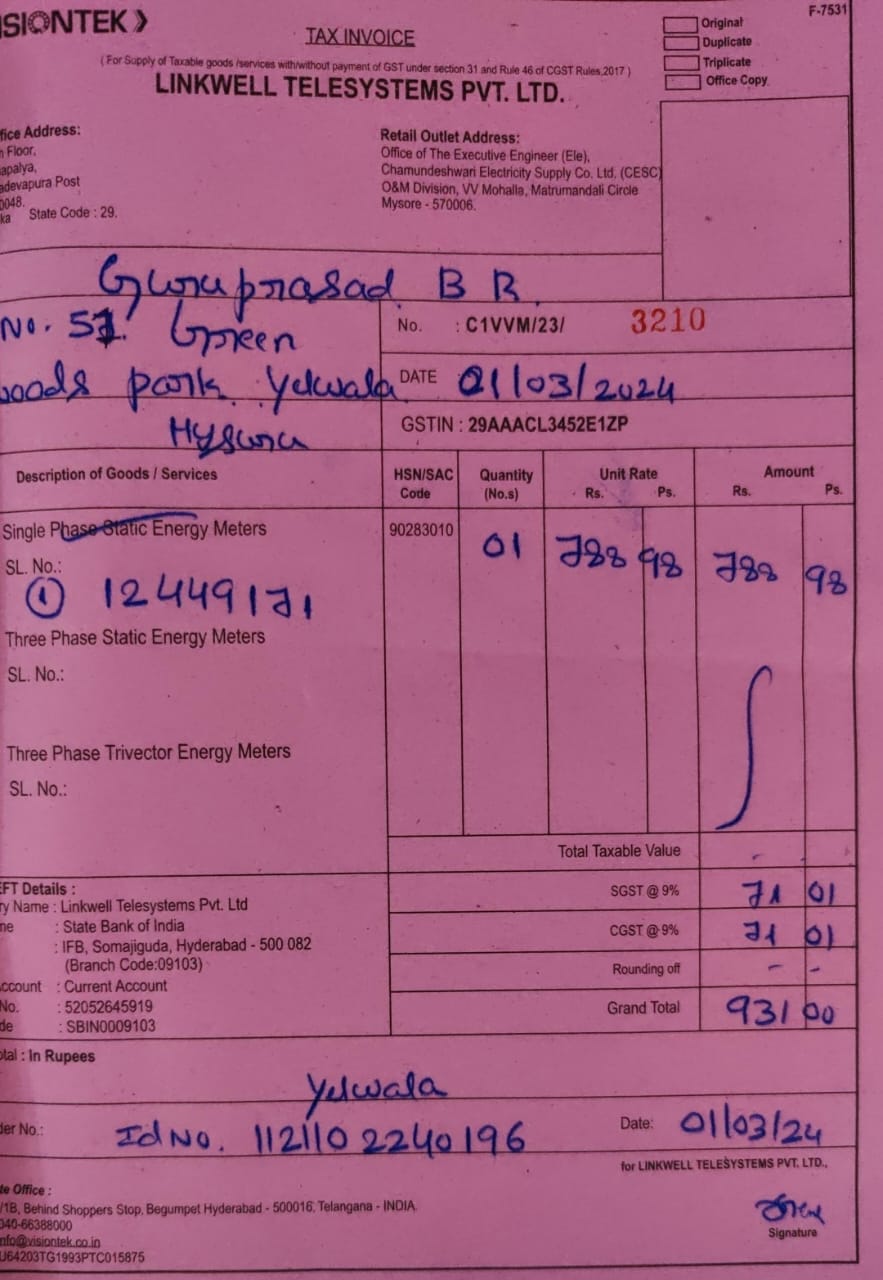 SIONTEK
F-7531
TAX INVOICE
Original
Duplicate
Triplicate
Office Copy
( For Supply of Taxable goods /services with/without payment of GST under section 31 and Rule 46 of CGST Rules,2017 )
LINKWELL TELESYSTEMS PVT. LTD.
fice Address:
Floor,
apalya,
adevapura Post
0048.
ka State Code : 29.
Retail Outlet Address:
Office of The Executive Engineer (Ele),
Chamundeshwari Electricity Supply Co. Ltd. (CESC)
O&M Division, VV Mohalla, Matrumandali Circle
Mysore - 570006.
Guruprasad B R
No. 51. Green
woods park Yelwala
Mysuru
No. : C1VVM/23/ 3210
DATE 01/03/2024
GSTIN : 29AAACL3452E1ZP
Description of Goods / Services HSN/SAC Code Quantity (No.s) Unit Rate Rs. Ps. Amount Rs. Ps.
Single Phase Static Energy Meters 90283010 01 788 98 788 98
SL. No.:
① 12449171
Three Phase Static Energy Meters
SL. No.:
Three Phase Trivector Energy Meters
SL. No.:
Total Taxable Value -
SGST @ 9% 71 01
CGST @ 9% 71 01
Rounding off - -
Grand Total 931 00
EFT Details :
ry Name : Linkwell Telesystems Pvt. Ltd
me : State Bank of India
: IFB, Somajiguda, Hyderabad - 500 082
(Branch Code:09103)
ccount : Current Account
No. : 52052645919
de : SBIN0009103
otal : In Rupees
Yelwala
der No.: Id No. 112110 2240196 Date: 01/03/24
for LINKWELL TELESYSTEMS PVT. LTD.,
te Office :
/1B, Behind Shoppers Stop, Begumpet Hyderabad - 500016, Telangana - INDIA.
040-66388000
nfo@visiontek.co.in
U64203TG1993PTC015875
Signature